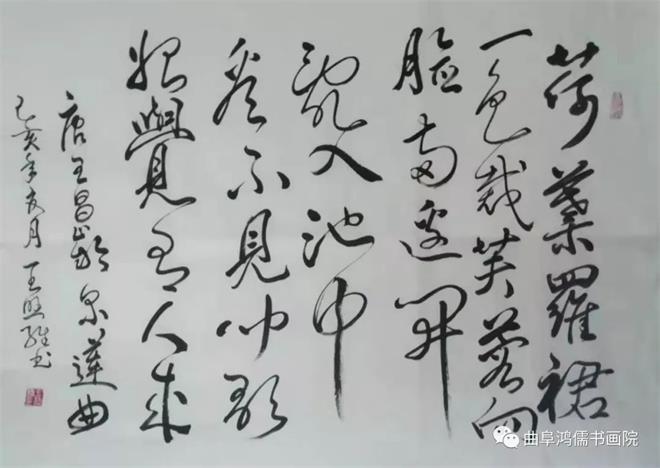 荷葉羅裙
一色裁芙蓉向
臉兩邊開
亂入池中
看不見聞歌
始覺有人來
唐王昌齡采蓮曲
己亥年夏月王书
曲阜鸿儒书画院